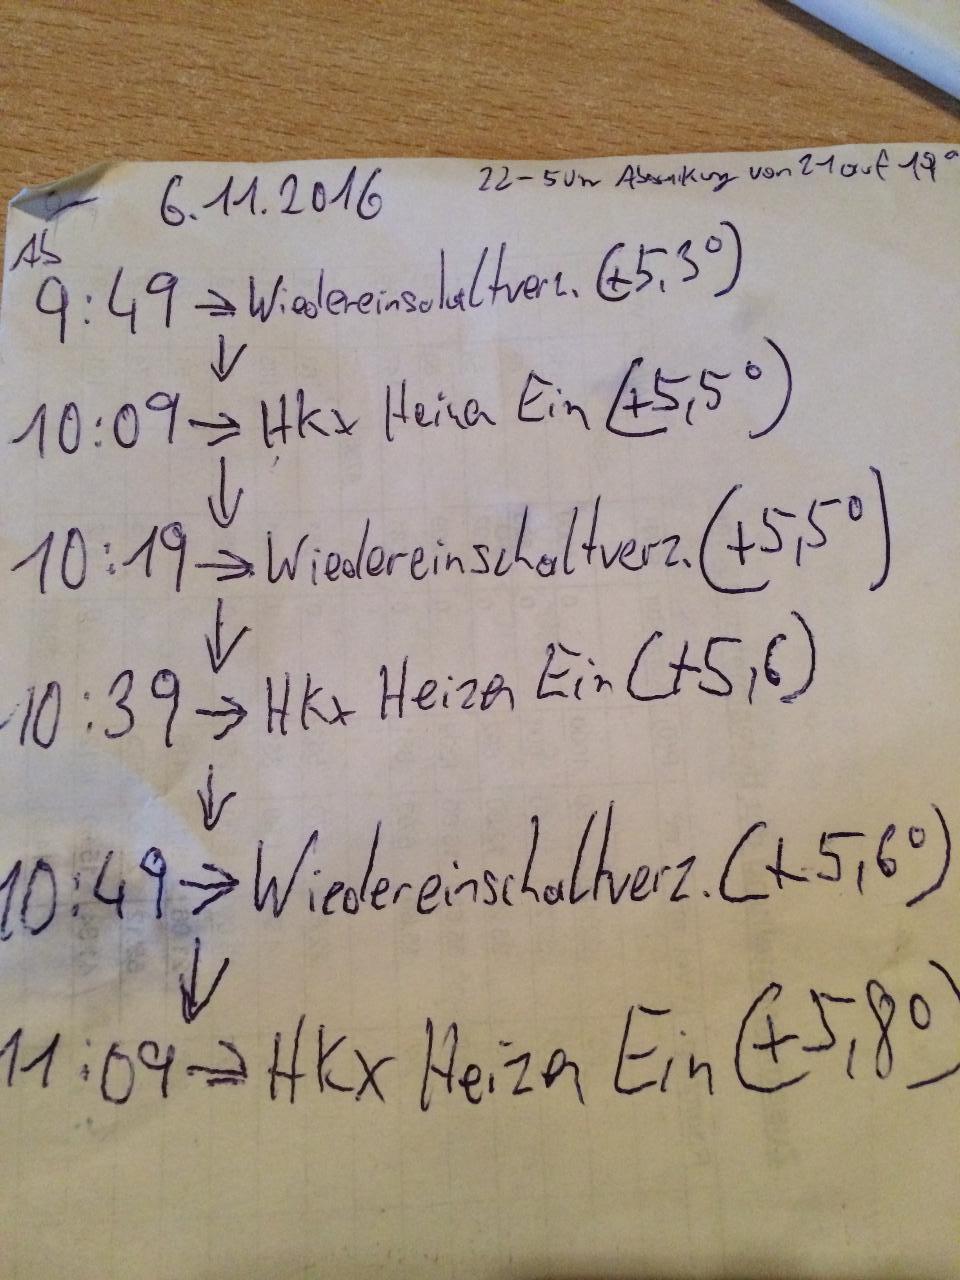 6.11.2016
22-5 Uhr Absenkung von 21 auf 19°
Ab
9:49 → Wiedereinschaltverz. (+5,3°)
↓
10:09 → HKx Heizen Ein (+5,5°)
↓
10:19 → Wiedereinschaltverz. (+5,5°)
↓
10:39 → HKx Heizen Ein (+5,6)
↓
10:49 → Wiedereinschaltverz. (+5,6°)
↓
11:09 → HKx Heizen Ein (+5,8°)